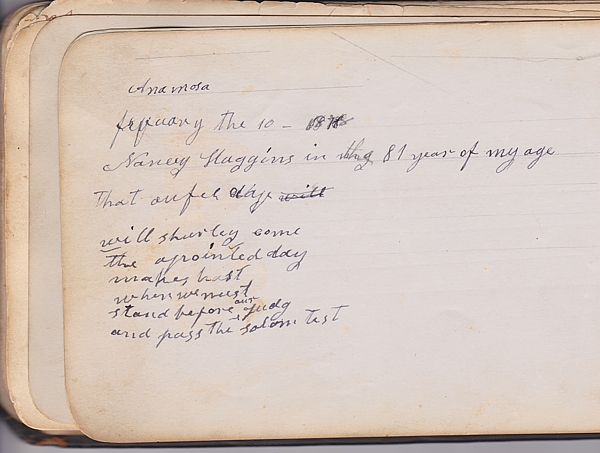 Anamosa
fepuary the 10 - 1878
Nancy Huggins in the 81 year of my age
That aufel day will
will shurley come
the apointed day
makes hast
when we must
stand before our judg
and pass the solom test